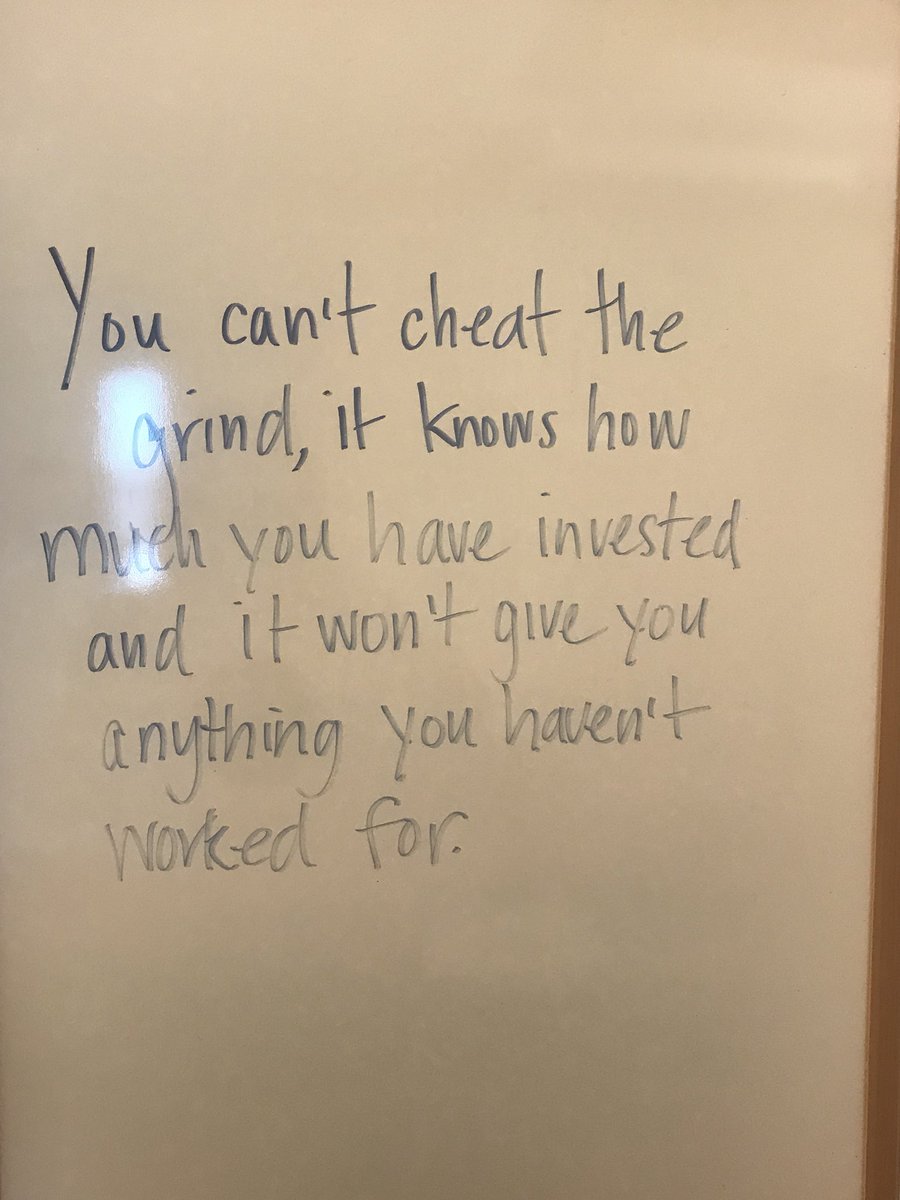 You can't cheat the
grind, it knows how
much you have invested
and it won't give you
anything you haven't
worked for.